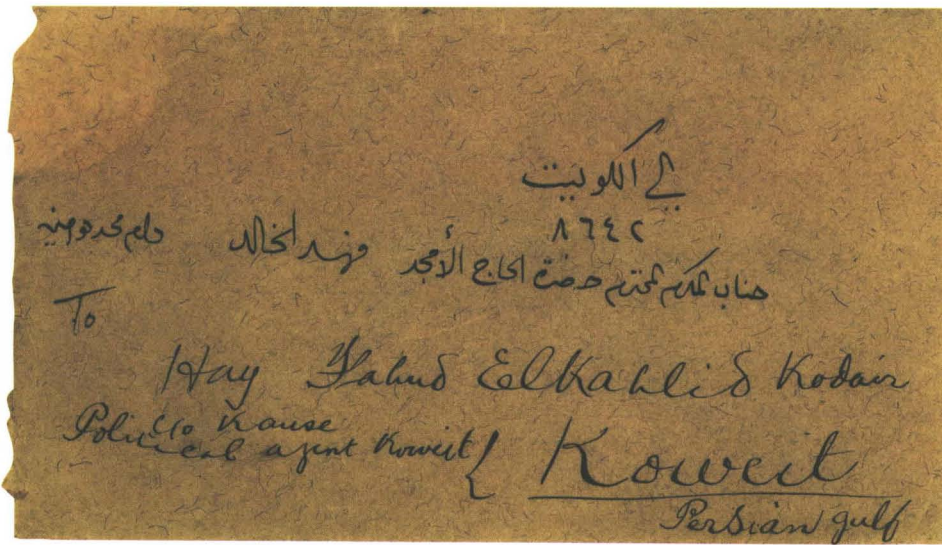 إلى الكويت
٨٦٤٢
جناب المكرم المحترم حضرة الحاج الأمجد فهد الخالد دام محروس
To
Hay Fahud ElKahlid Kodair
c/o Kause
Political agent Koweit { Koweit
Persian gulf